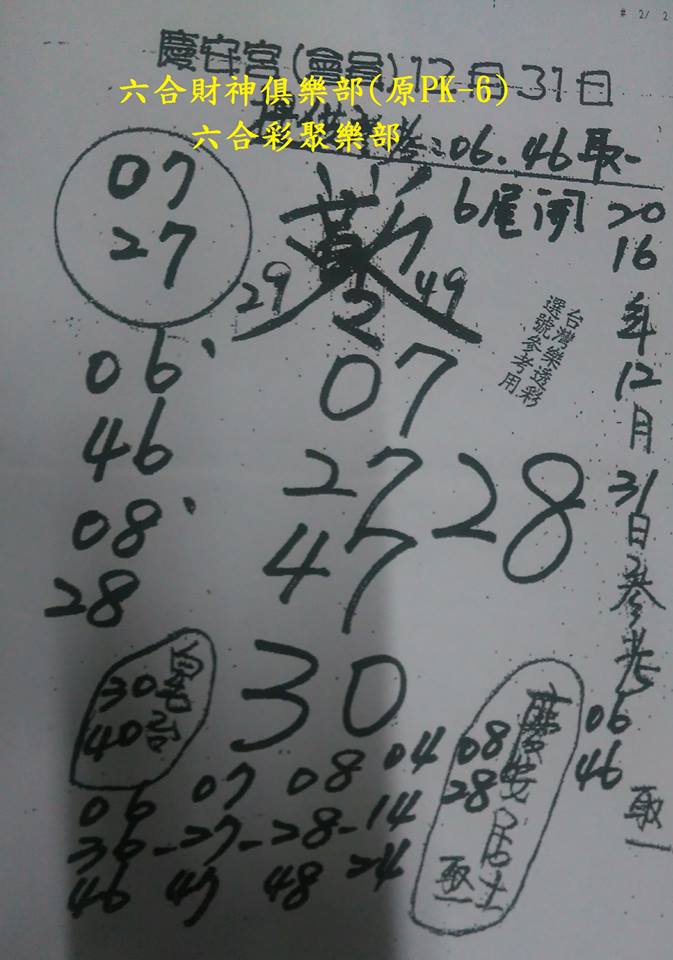 # 2/ 2
慶安宮(會員)12月31日
六合財神俱樂部(原PK-6)
六合彩聚樂部
06.46取一
6尾闹
2016年12月31日參考
07
27
29
2
49
台灣樂透彩
選號參考用
06、
46
08、
28
07
27
47
28
30
30
40
04
08
28
慶安居士
取一
06
46
取一
06 07 08
36-27-28-14
46 47 48 24